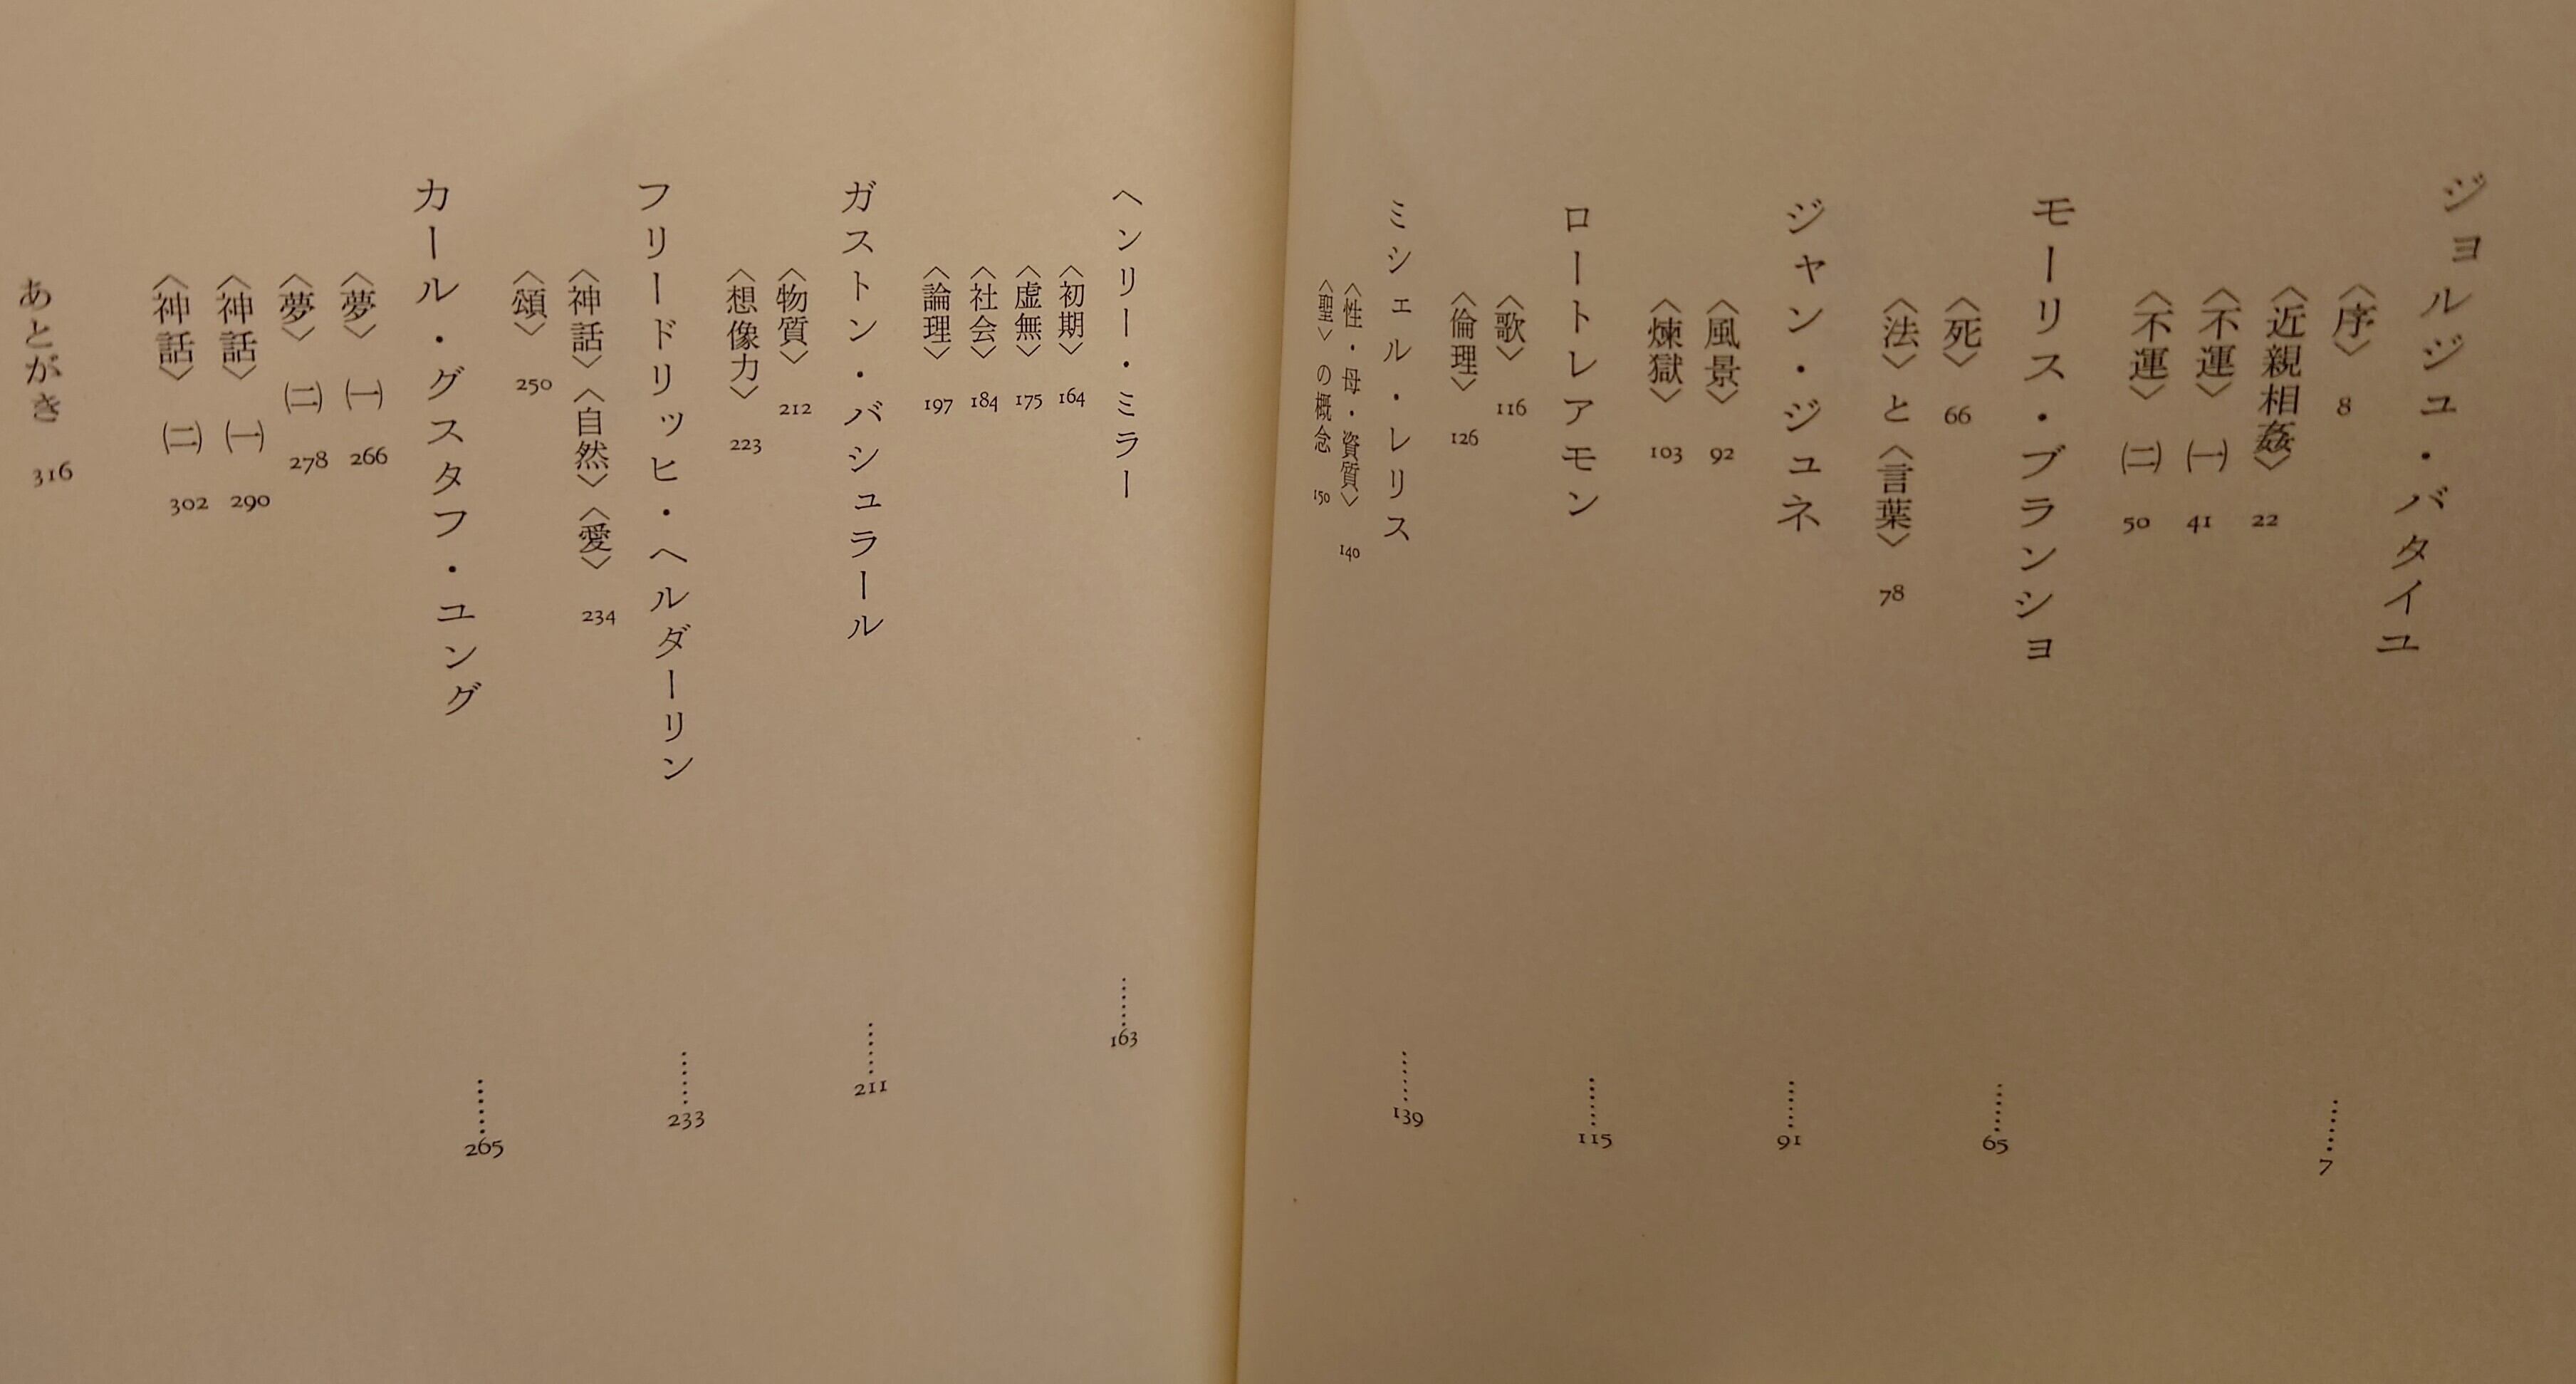 ジョルジュ・バタイユ……7
〈序〉 8
〈近親相姦〉 22
〈不運〉 ㈠ 41
〈不運〉 ㈡ 50
モーリス・ブランショ……65
〈死〉 66
〈法〉と〈言葉〉 78
ジャン・ジュネ……91
〈風景〉 92
〈煉獄〉 103
ロートレアモン……115
〈歌〉 116
〈倫理〉 126
ミシェル・レリス……139
〈性・母・資質〉 140
〈聖〉の概念 150
ヘンリー・ミラー……163
〈初期〉 164
〈虚無〉 175
〈社会〉 184
〈論理〉 197
ガストン・バシュラール……211
〈物質〉 212
〈想像力〉 223
フリードリッヒ・ヘルダーリン……233
〈神話〉〈自然〉〈愛〉 234
〈頌〉 250
カール・グスタフ・ユング……265
〈夢〉 ㈠ 266
〈夢〉 ㈡ 278
〈神話〉 ㈠ 290
〈神話〉 ㈡ 302
あとがき 316